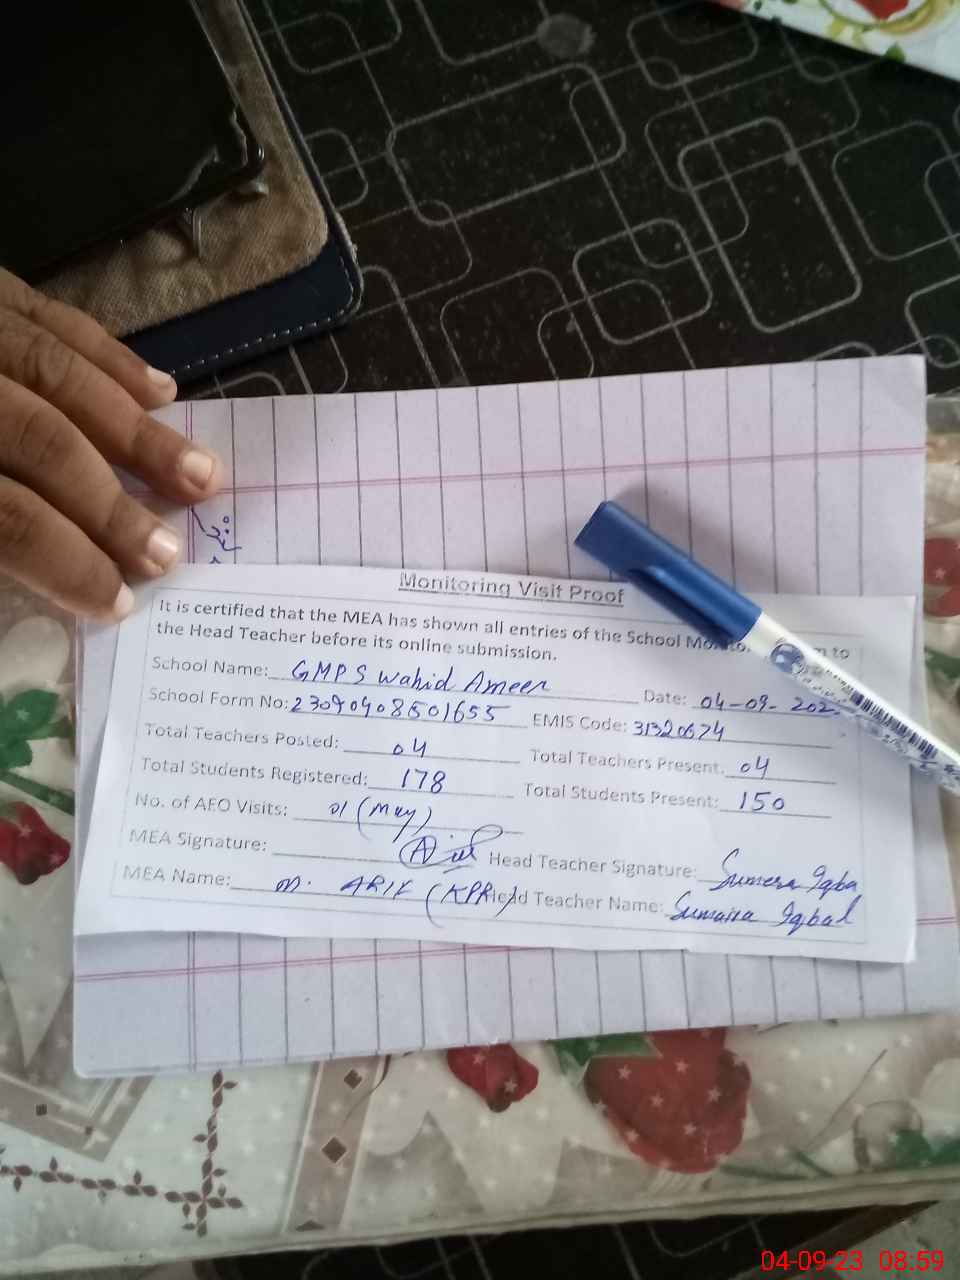 Monitoring Visit Proof
It is certified that the MEA has shown all entries of the School to
the Head Teacher before its online submission.
School Name: GMPS Wahid Ameer Date: 04-09-202
School Form No: 23090908501655 EMIS Code: 31320674
Total Teachers Posted: 04 Total Teachers Present: 04
Total Students Registered: 178 Total Students Present: 150
No. of AEO Visits: 01 (May)
MEA Signature: Head Teacher Signature: Sumera Iqba
MEA Name: M. ARIF (KPR) Head Teacher Name: Sumaira Iqbal
04-09-23 08:59